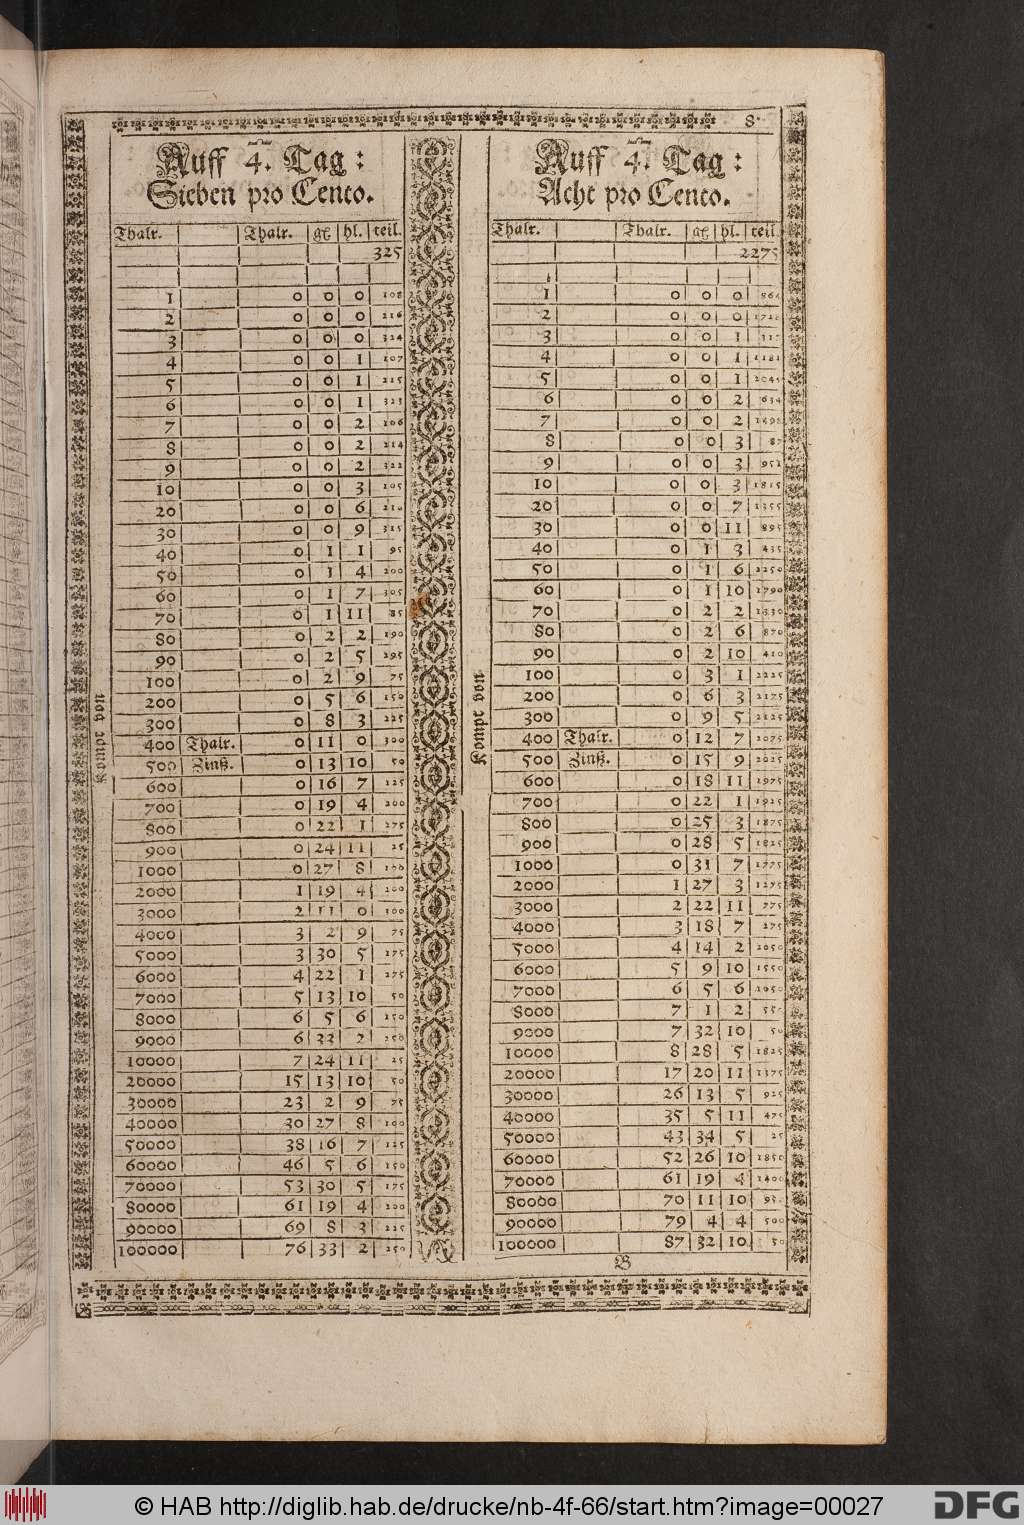 8.
Auff 4. Tag:
Sieben pro Cento.
Thalr. Thalr. gł hl. teil.
325
1 0 0 0 108
2 0 0 0 216
3 0 0 0 324
4 0 0 1 107
5 0 0 1 215
6 0 0 1 323
7 0 0 2 106
8 0 0 2 214
9 0 0 2 322
10 0 0 3 105
20 0 0 6 210
30 0 0 9 315
40 0 1 1 95
50 0 1 4 200
60 0 1 7 305
70 0 1 11 85
80 0 2 2 190
90 0 2 5 295
100 0 2 9 75
200 0 5 6 150
300 0 8 3 225
400 Thalr. 0 11 0 300
500 Zinß. 0 13 10 50
600 0 16 7 125
700 0 19 4 200
800 0 22 1 275
900 0 24 11 25
1000 0 27 8 100
2000 1 19 4 200
3000 2 11 0 300
4000 3 2 9 75
5000 3 30 5 175
6000 4 22 1 275
7000 5 13 10 50
8000 6 5 6 150
9000 6 33 2 250
10000 7 24 11 25
20000 15 13 10 50
30000 23 2 9 75
40000 30 27 8 100
50000 38 16 7 125
60000 46 5 6 150
70000 53 30 5 175
80000 61 19 4 200
90000 69 8 3 225
100000 76 33 2 250
Kompt von
Auff 4. Tag:
Acht pro Cento.
Thalr. Thalr. gł hl. teil.
2275
1 0 0 0 864
2 0 0 0 1728
3 0 0 1 317
4 0 0 1 1181
5 0 0 1 2045
6 0 0 2 634
7 0 0 2 1498
8 0 0 3 87
9 0 0 3 951
10 0 0 3 1815
20 0 0 7 1355
30 0 0 11 895
40 0 1 3 435
50 0 1 6 2250
60 0 1 10 1790
70 0 2 2 1330
80 0 2 6 870
90 0 2 10 410
100 0 3 1 2225
200 0 6 3 2175
300 0 9 5 2125
400 Thalr. 0 12 7 2075
500 Zinß. 0 15 9 2025
600 0 18 11 1975
700 0 22 1 1925
800 0 25 3 1875
900 0 28 5 1825
1000 0 31 7 1775
2000 1 27 3 1275
3000 2 22 11 775
4000 3 18 7 275
5000 4 14 2 2050
6000 5 9 10 1550
7000 6 5 6 1050
8000 7 1 2 550
9000 7 32 10 50
10000 8 28 5 1825
20000 17 20 11 1375
30000 26 13 5 925
40000 35 5 11 475
50000 43 34 5 25
60000 52 26 10 1850
70000 61 19 4 1400
80000 70 11 10 950
90000 79 4 4 500
100000 87 32 10 50
Kompt von
B
© HAB http://diglib.hab.de/drucke/nb-4f-66/start.htm?image=00027
DFG